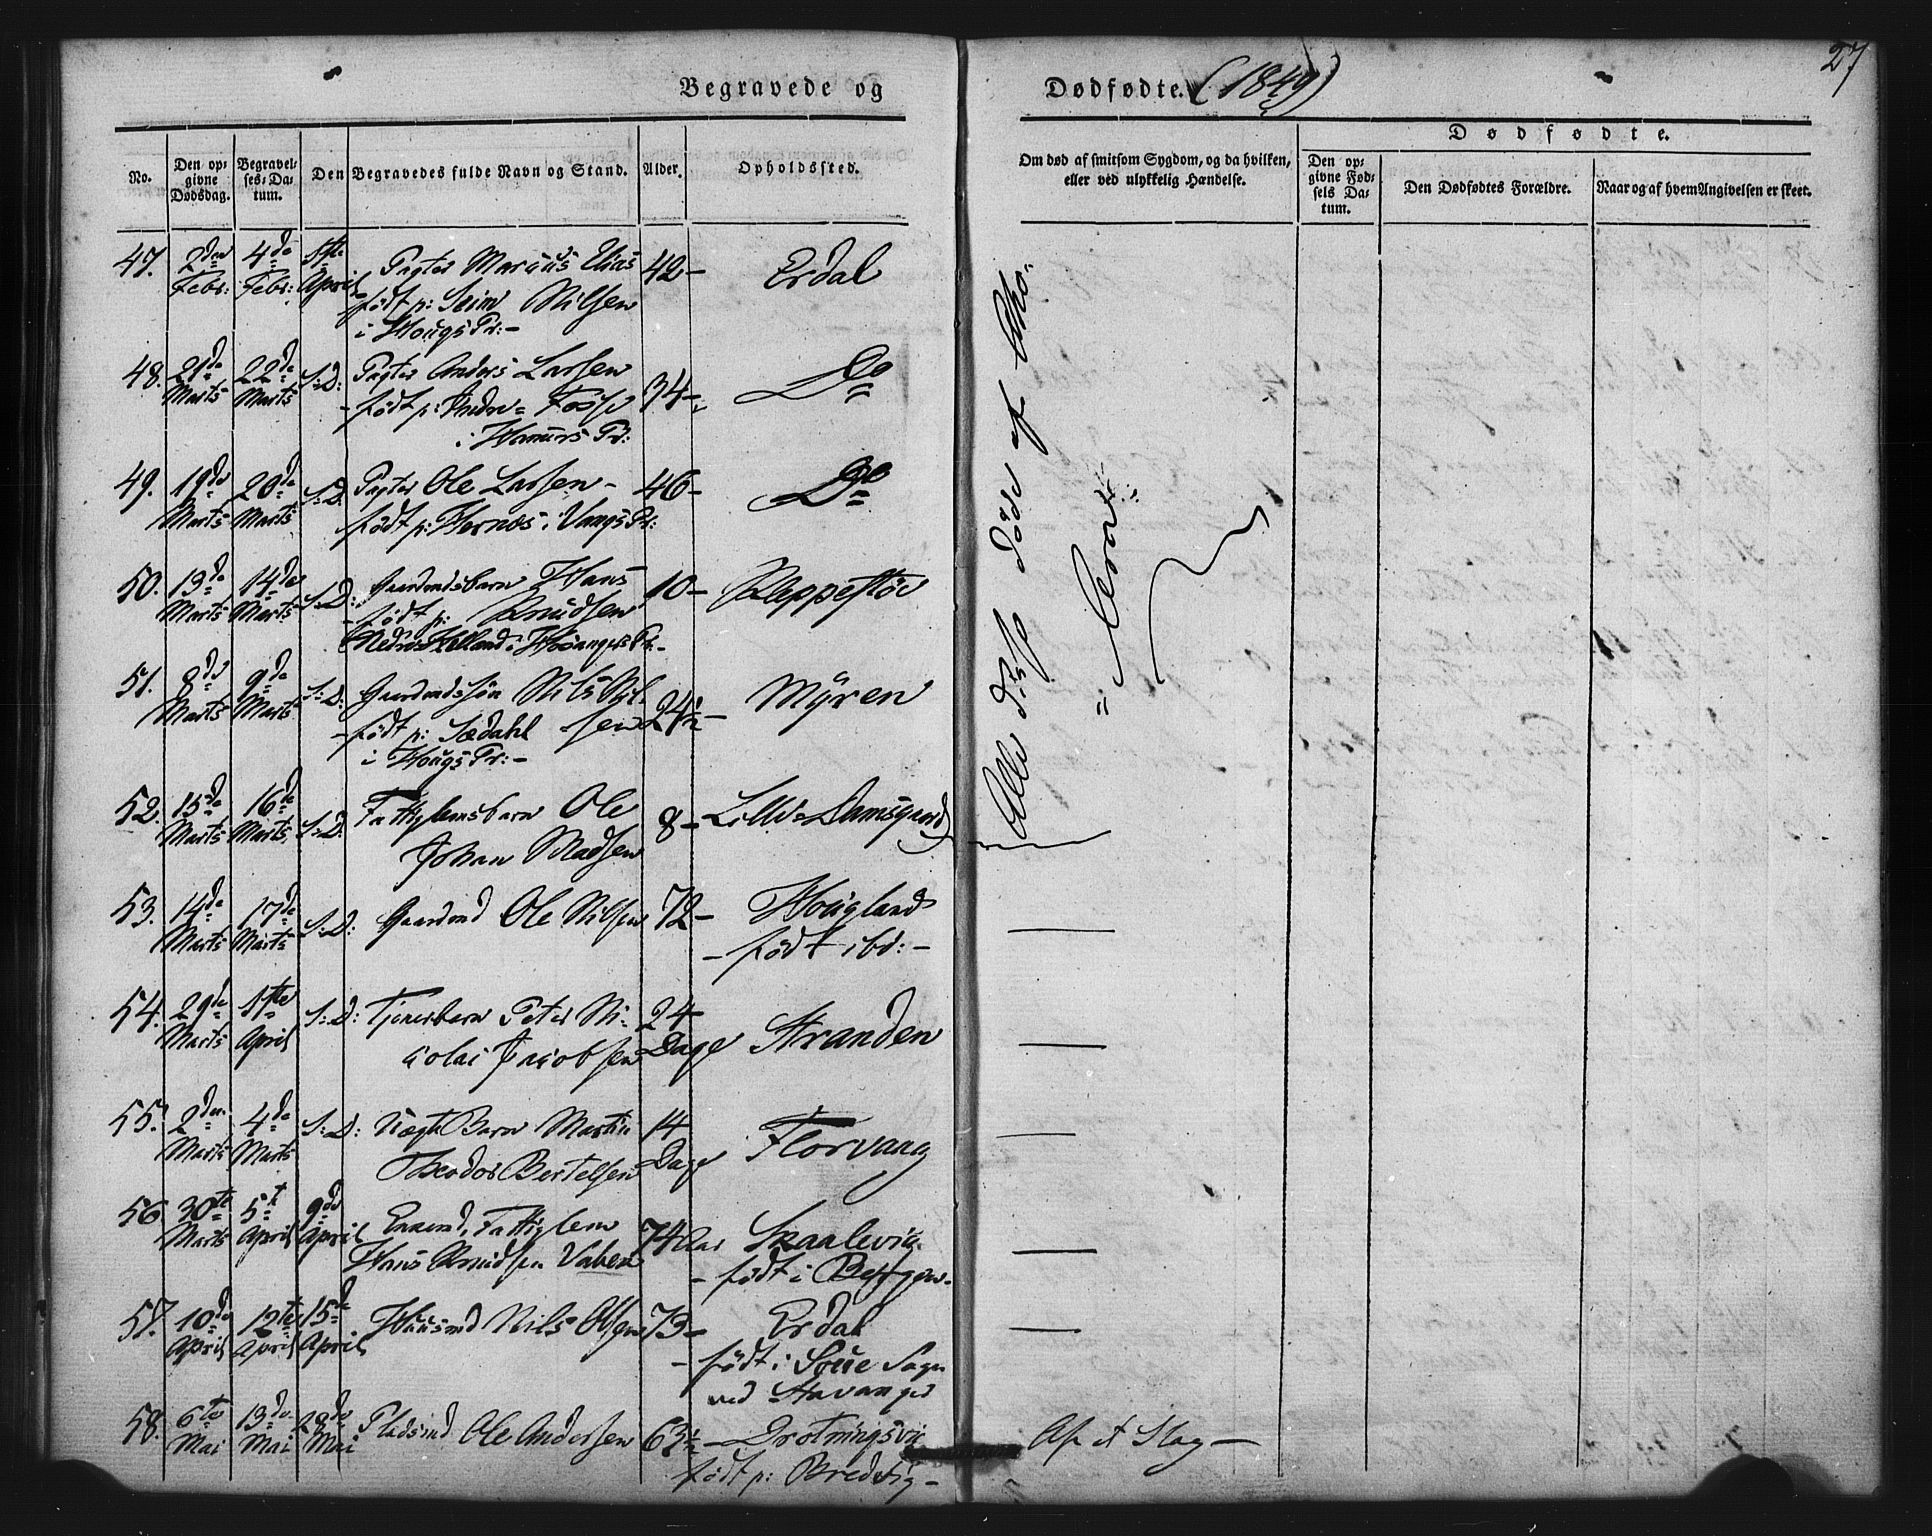 27
Begravede og Dødfødte. (1849)
No.
Den op-
givne
Dødsdag.
Begravel-
ses-Da-
tum.
Den Begravedes fulde Navn og Stand.
Alder.
Opholdssted.
Om død af smitsom Sygdom, og da hvilken,
eller ved ulykkelig Hændelse.
Dødfødte.
Den op-
givne Fød-
sels Da-
tum.
Den Dødfødtes Forældre.
Naar og af hvem Angivelsen er skeet.
47. 2den 4de 1ste Pagter Marcus Elias 42- Erdal
Febr: Febr: April født p: Seim Nilsen
i Hougs Pr:-
48. 21de 22de S:D: Pagter Anders Larsen 34- Do
Marts Marts -født p: Indre= Fosse
i Hammers Pr:
49. 19de 20de S:D: Pagter Ole Larsen- 46- Do
Marts Marts født p: Hernæs i Vangs Pr:
50. 13de 14de S:D: Gaardmdsbarn Hans 10- Kleppestøe
Marts Marts -født p: Knudsen
Nedre Helland i Hosangers Pr.-
51. 8de 9de S:D: Gaardmdssøn Nils Nil- 24½- Myren
Marts Marts -født p: Sædahl sen
i Hougs Pr:-
52. 15de 16de S:D: Fattiglemsbarn Ole 8- Lille=Damsgaard
Marts Marts Johan Madsen
Alle disse døde af Cho-
=lera=
53. 14de 17de S:D: Gaardmd Ole Nilsen 72- Hougland
Marts Marts -født ibd:-
54. 29de 1ste S:D: Tjenerbarn Peter Ni- 24 Stranden
Marts April colai Jacobsen Dage
55. 2den 4de S:D: Uægte Barn Martin 14 Florvaag
Marts Marts Theodor Bertelsen Dage
56. 30te 5te 9de Enkemd, Fattiglem 74 Aar Skaalevig
Marts April April Hans Knudsen -født i Bergen-
57. 10de 12te 15de Huusmd Nils Olsen 73- Erdal
April April April -født i Sogn
ved Stavanger
58. 6te 13de 20de Pladsmd Ole Andersen 63½- Drotningsvig
Mai Mai Mai født p: Bredvig-
Af et Slag-